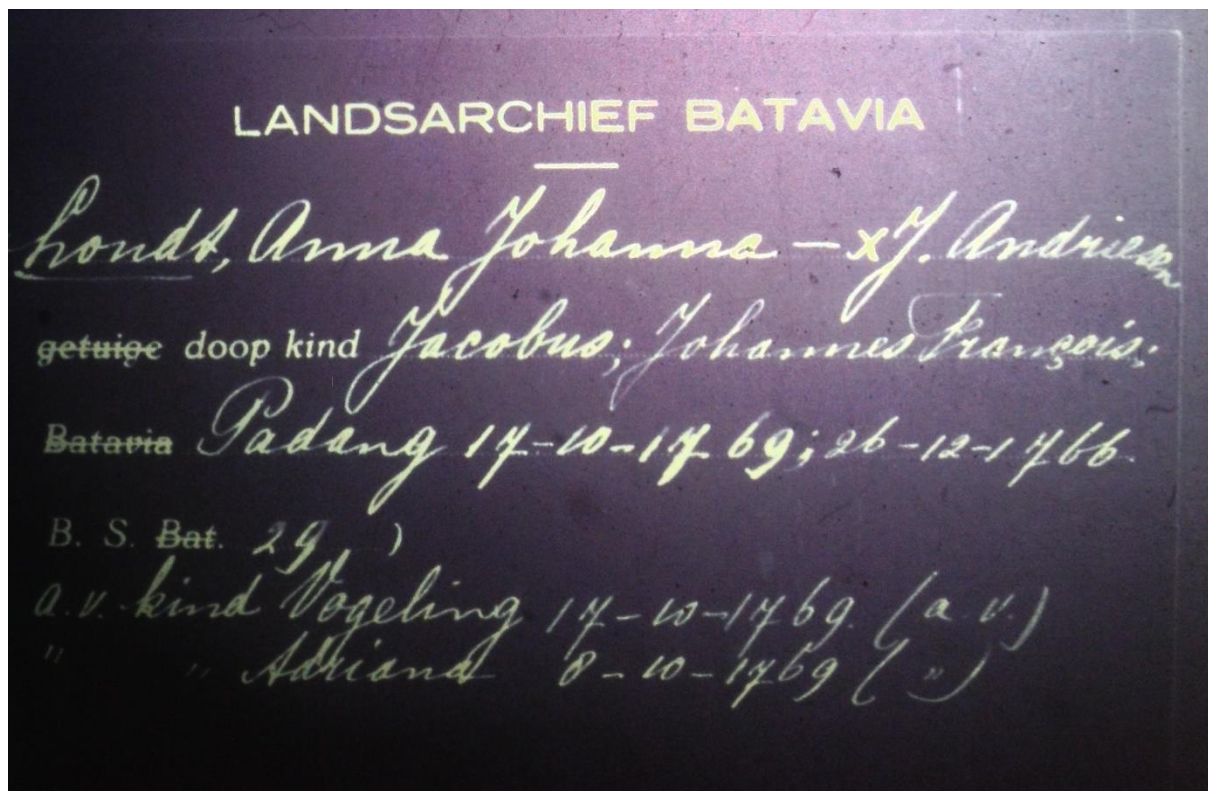 LANDSARCHIEF BATAVIA
Londt, Anna Johanna – x J. Andriesen
getuige doop kind Jacobus; Johannes François;
Batavia Padang 17-10-1769; 26-12-1766.
B. S. Bat. 29, )
a.v. kind Vogeling 17-10-1769. (a.v.)
" " Adriana 8-10-1769 ( " )